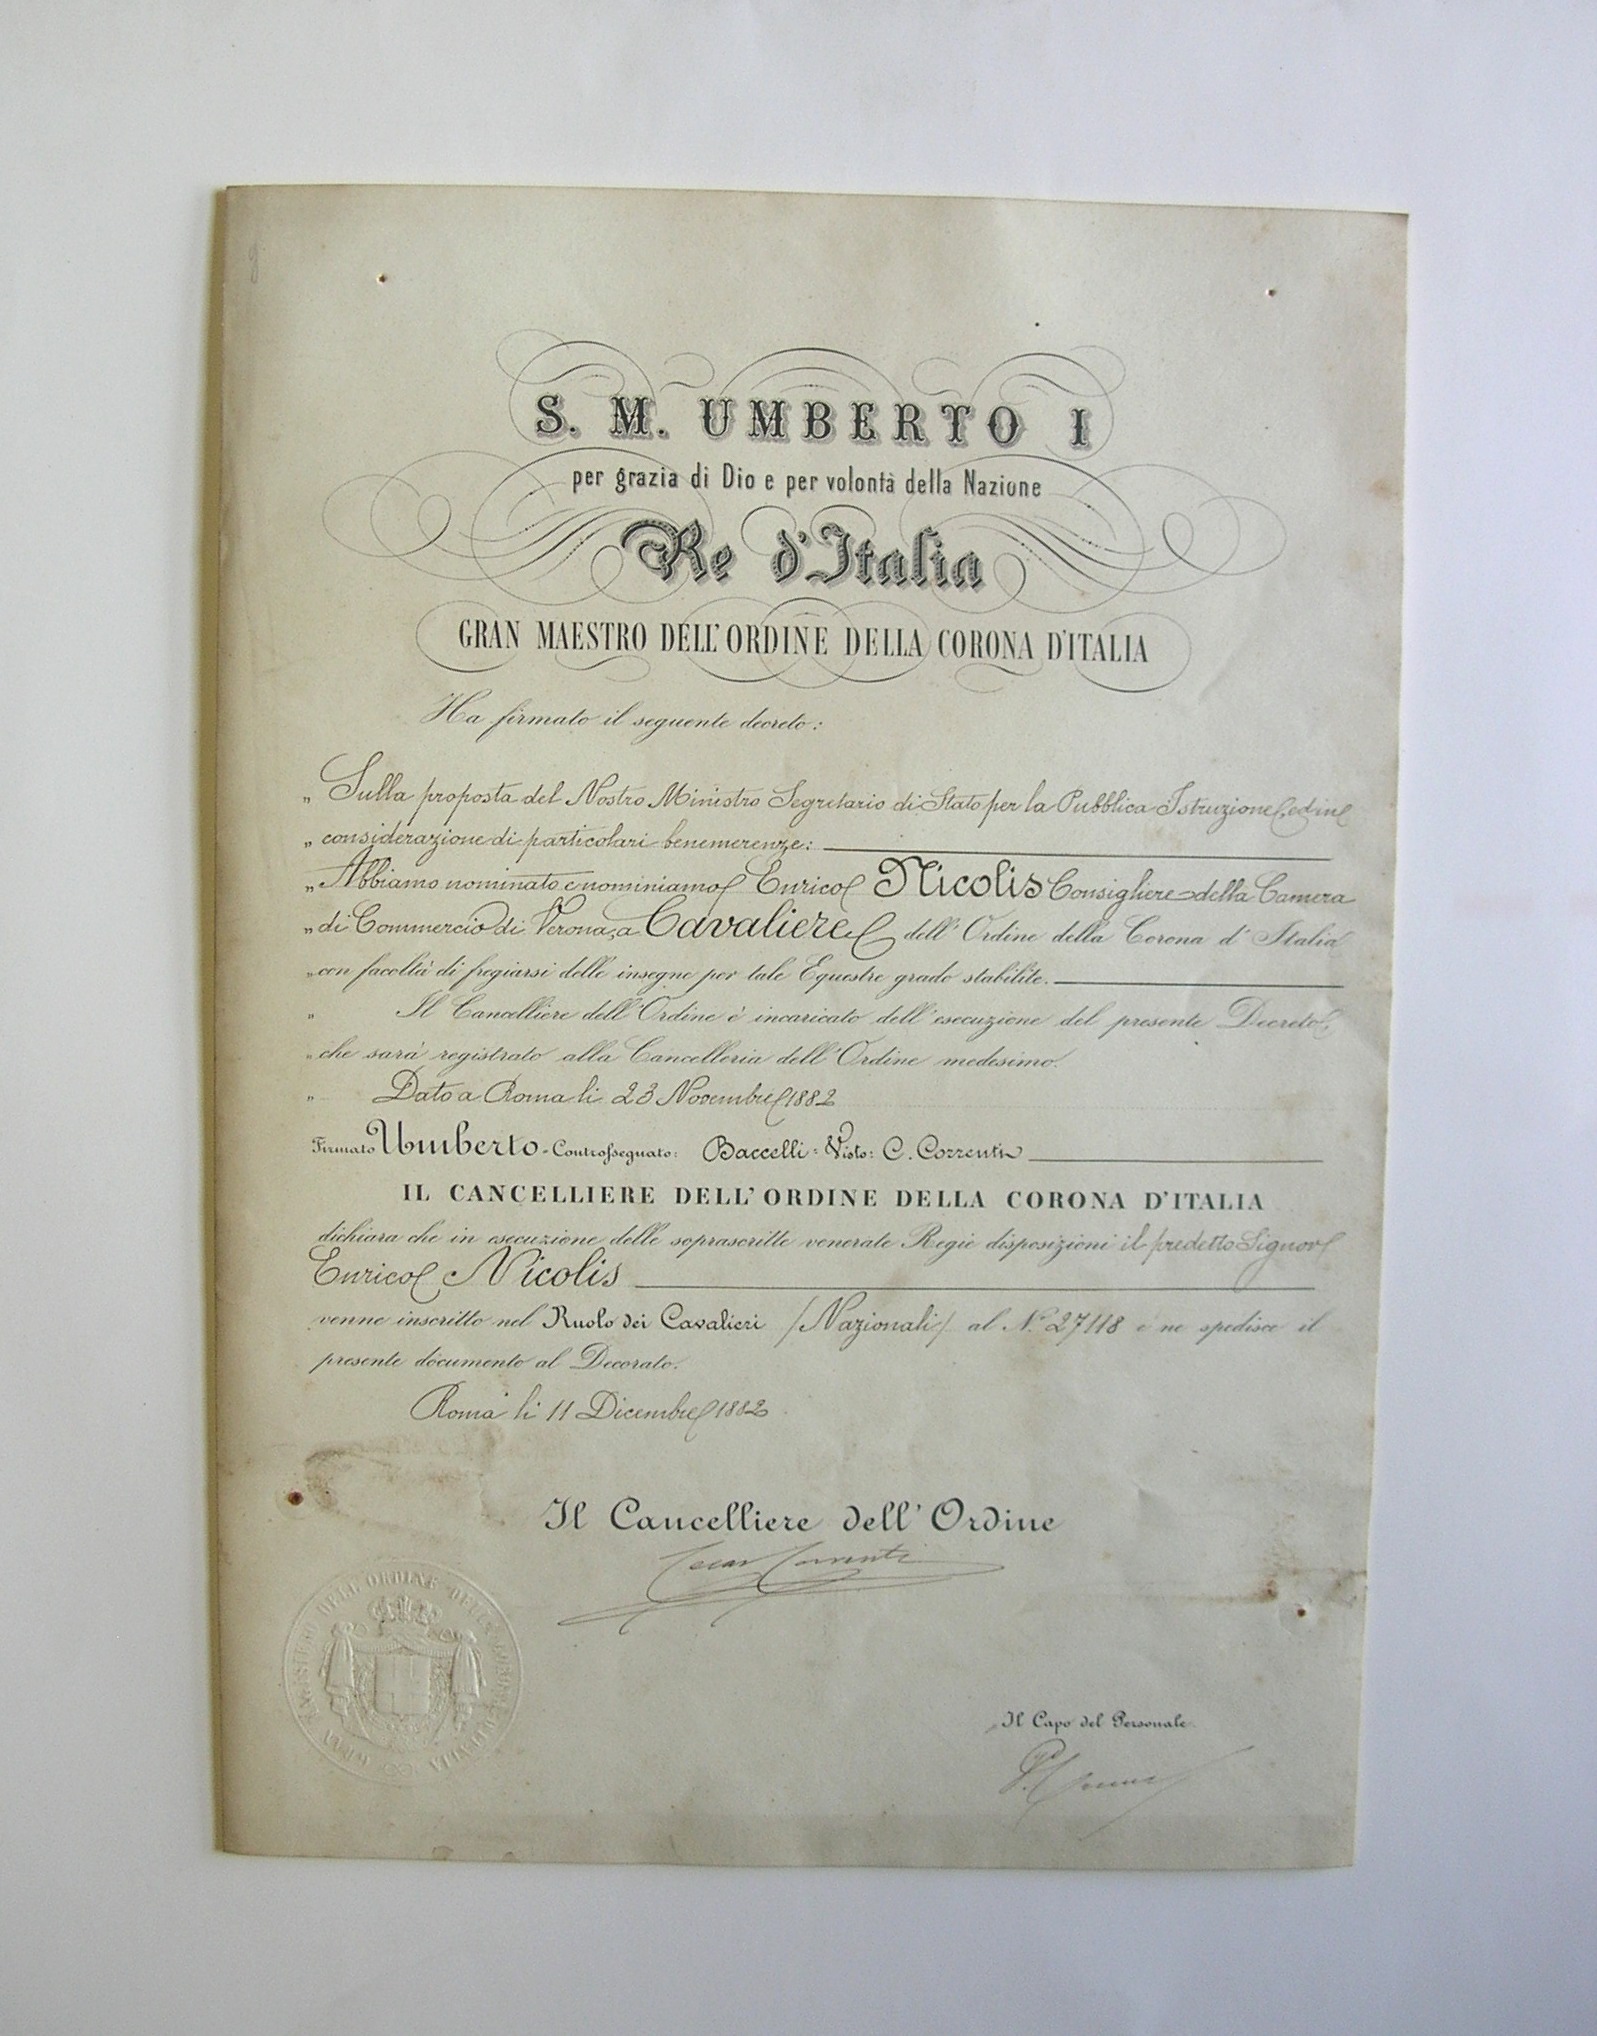 S. M. UMBERTO I
per grazia di Dio e per volontà della Nazione
Re d'Italia
GRAN MAESTRO DELL'ORDINE DELLA CORONA D'ITALIA
Ha firmato il seguente decreto:
„ Sulla proposta del Nostro Ministro Segretario di Stato per la Pubblica Istruzione, ed in
„ considerazione di particolari benemerenze:
„ Abbiamo nominato e nominiamo Enrico Nicolis Consigliere della Camera
„ di Commercio di Verona, a Cavaliere dell'Ordine della Corona d'Italia
„ con facoltà di fregiarsi delle insegne per tale Equestre grado stabilite.
„ Il Cancelliere dell'Ordine è incaricato dell'esecuzione del presente Decreto,
„ che sarà registrato alla Cancelleria dell'Ordine medesimo.
„ Dato a Roma li 23 Novembre 1882
Firmato Umberto - Controsegnato: Baccelli - Visto: C. Correnti
IL CANCELLIERE DELL'ORDINE DELLA CORONA D'ITALIA
dichiara che in esecuzione delle soprascritte venerate Regie disposizioni il predetto Signor
Enrico Nicolis
venne inscritto nel Ruolo dei Cavalieri (Nazionali) al N.° 27118 e ne spedisce il
presente documento al Decorato.
Roma li 11 Dicembre 1882
Il Cancelliere dell'Ordine
Cesare Correnti
GRAN MAGISTERO DELL'ORDINE DELLA CORONA D'ITALIA
Il Capo del Personale